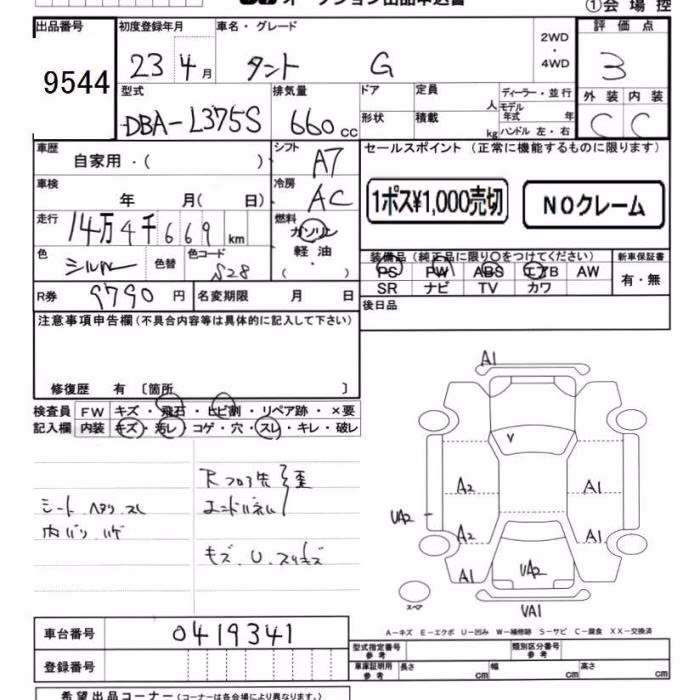 オークション出品申込書
①会場控
出品番号 9544
初度登録年月 23 4月
車名・グレード タント G
2WD・4WD
評価点 3
外装 C 内装 C
型式 DBA-L375S
排気量 660cc
ドア 形状
定員 人
積載 kg
ディーラー・並行
モデル年式 年
ハンドル 左・右
車歴 自家用・( )
シフト A7
セールスポイント (正常に機能するものに限ります)
車検 年 月( 日)
冷房 AC
1ポス¥1,000売切 NOクレーム
走行 14万4千669km
燃料 ガソリン 軽油 ( ・ )
色 シルバー 色替 色コード S28
装備品 (純正品に限り○をつけてください)
PS PW ABS エアB AW
SR ナビ TV カワ
新車保証書 有・無
R券 9790円
名変期限 月 日
後日品
注意事項申告欄 (不具合内容等は具体的に記入して下さい)
修復歴 有 〔箇所 〕
検査員記入欄
FW キズ・飛石・ヒビ割・リペア跡・×要
内装 キズ・汚レ・コゲ・穴・スレ・キレ・破レ
シート ヘタリ スレ
内バリ ハゲ
Rフロア先
エンドパネル
歪
キズ、U、スリキズ
A1
V
A2 A1
UA2
A2 A1
A1 UA2
スペア
VA1
A-キズ E-エクボ U-凹み W-補修跡 S-サビ C-腐食 XX-交換済
車台番号 0419341
登録番号
型式指定番号 参考
類別区分番号 参考
車庫証明用 参考 長さ cm 幅 cm 高さ cm
希望出品コーナー (コーナーは各会場により異なります)